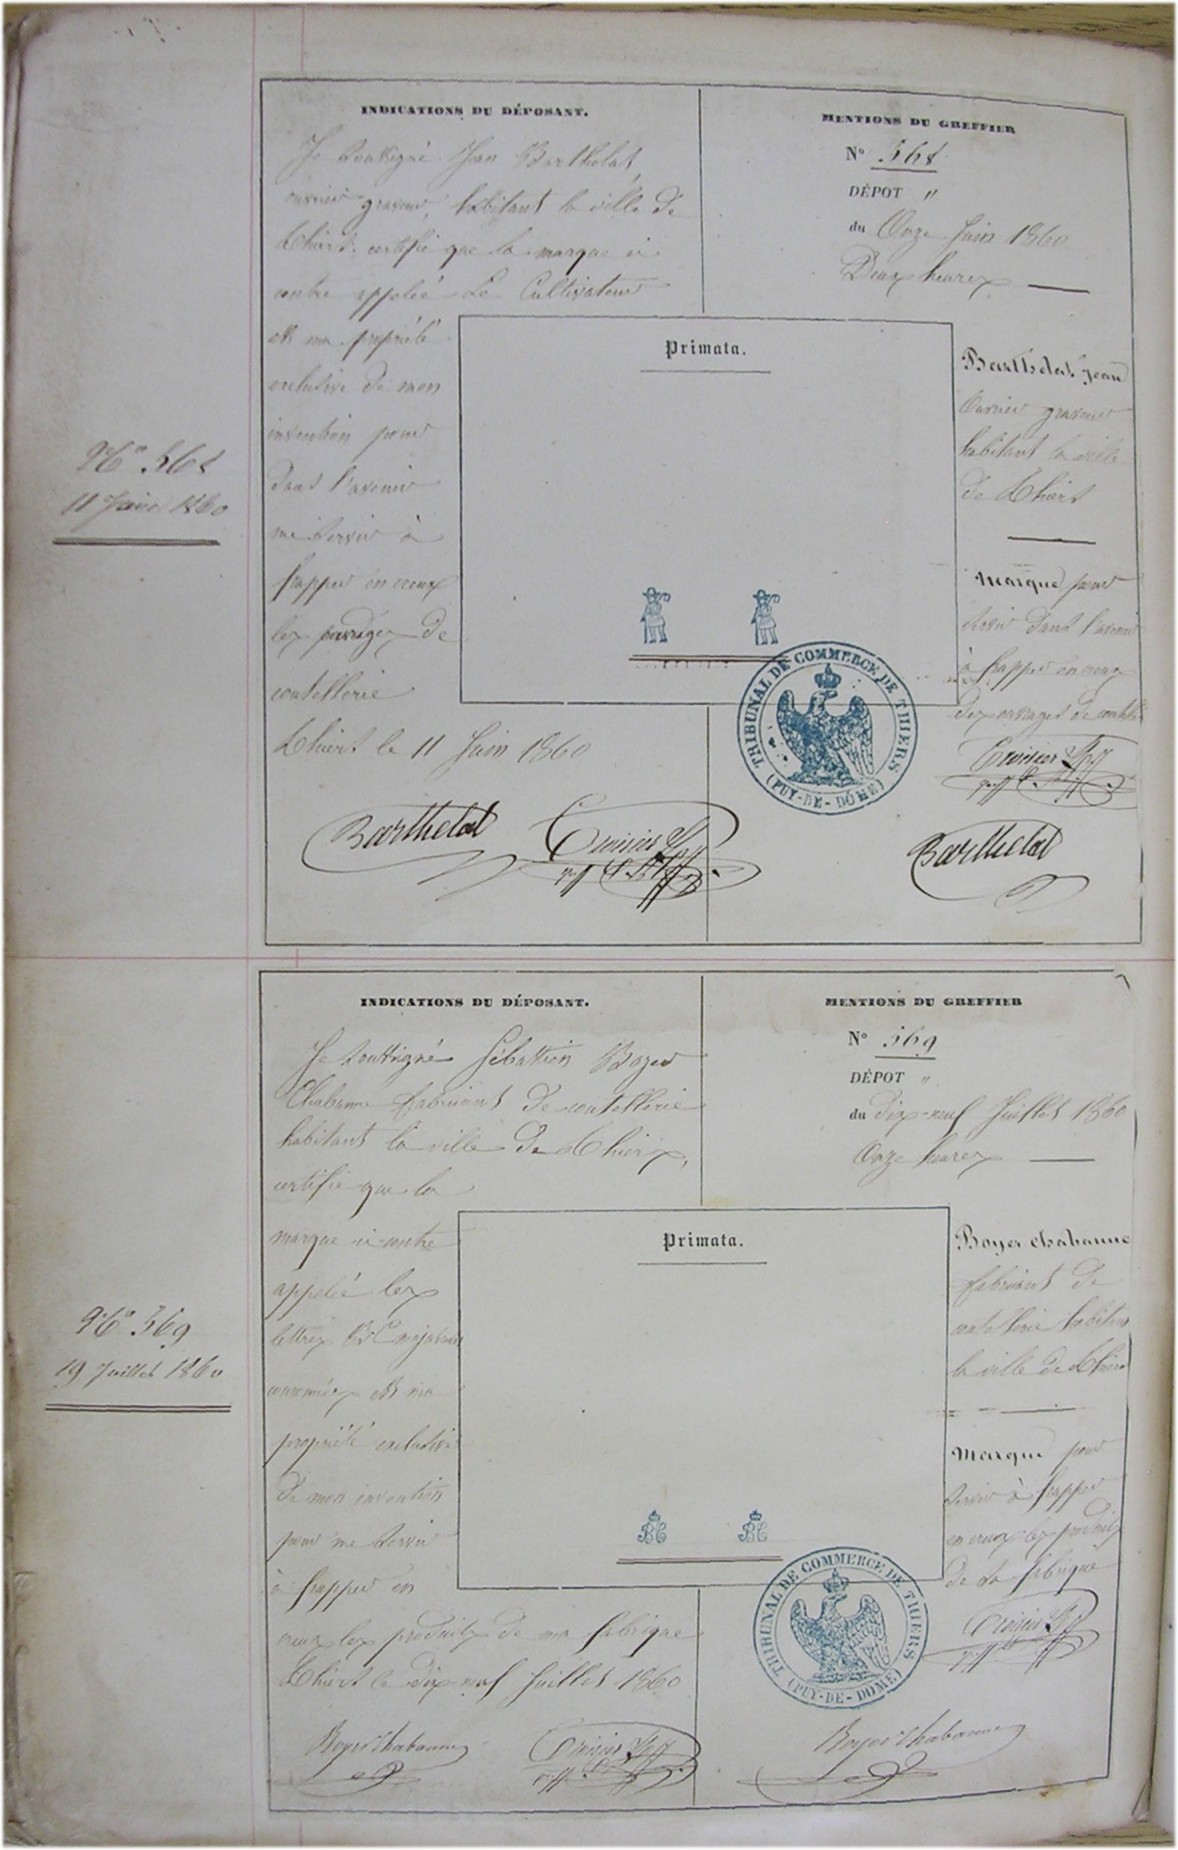 INDICATIONS DU DÉPOSANT.
Je soussigné Jean Barthelat
ouvrier graveur, habitant la ville de
Thiers certifie que la marque ci
contre appelée Le Cultivateur
est ma propriété
exclusive de mon
invention pour
dans l'avenir
me servir à
frapper en creux
les ouvrages de
coutellerie
Thiers le 11 Juin 1860
Barthelat
MENTIONS DU GREFFIER
N° 568
DÉPOT "
du Onze Juin 1860
Deux heures
Primata.
Barthelat Jean
Ouvrier graveur
habitant la ville
de Thiers
Marque pour
servir dans l'avenir
à frapper en creux
des ouvrages de
Barthelat
TRIBUNAL DE COMMERCE DE THIERS
(PUY-DE-DÔME)
N° 568
11 Juin 1860
INDICATIONS DU DÉPOSANT.
Je soussigné Sébastien Boyer
Chabanne fabricant de coutellerie
habitant la ville de Thiers,
certifie que la
marque ci-contre
appelée les
lettres B C majuscules
couronnées est ma
propriété exclusive
de mon invention
pour me servir
à frapper en
creux les produits de ma fabrique
Thiers le dix-neuf Juillet 1860
Boyer Chabanne
MENTIONS DU GREFFIER
N° 569
DÉPOT "
du dix-neuf Juillet 1860
Onze heures
Primata.
BC BC
Boyer Chabanne
fabricant de
coutellerie habitant
la ville de Thiers
Marque pour
servir à frapper
en creux les produits
de sa fabrique
Boyer Chabanne
TRIBUNAL DE COMMERCE DE THIERS
(PUY-DE-DÔME)
N° 569
19 Juillet 1860